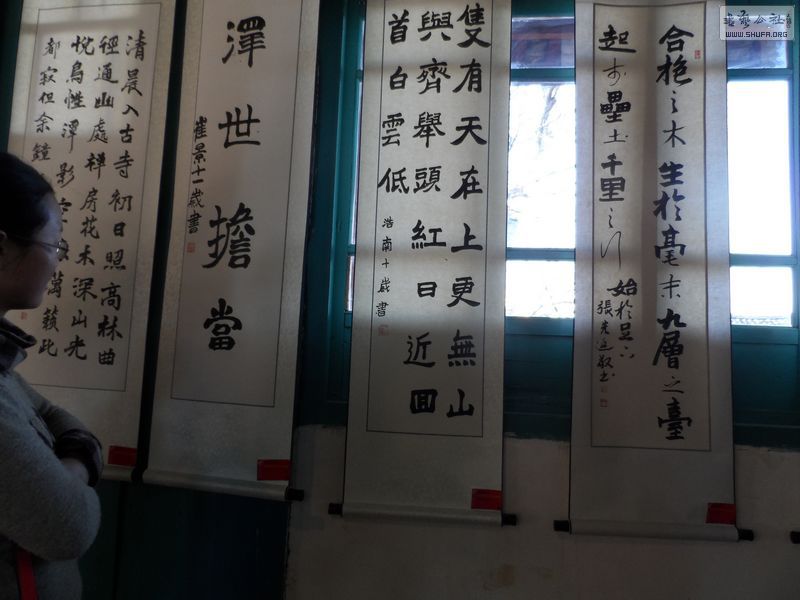 書藝公社
WWW.SHUFA.ORG
合抱之木生於毫末九層之臺
起於壘土千里之行
始於足下
隻有天在上更無山
與齊舉頭紅日近回
首白雲低
浩南十歲書
澤世擔當
崔景十一歲書
清晨入古寺初日照高林曲
徑通幽處禪房花木深山光
悅鳥性潭影空 萬籟此
都寂但余鐘